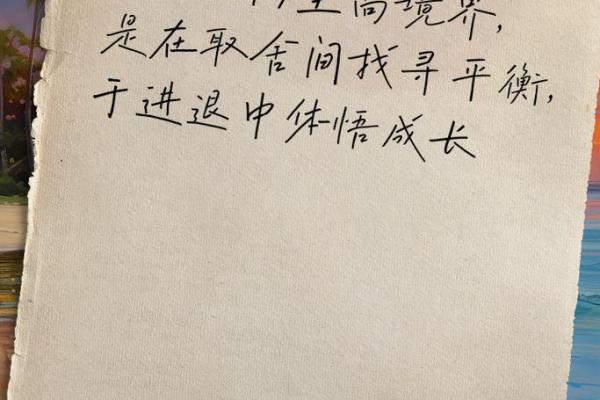 至高境界,
是在取舍间找寻平衡,
于进退中体悟成长